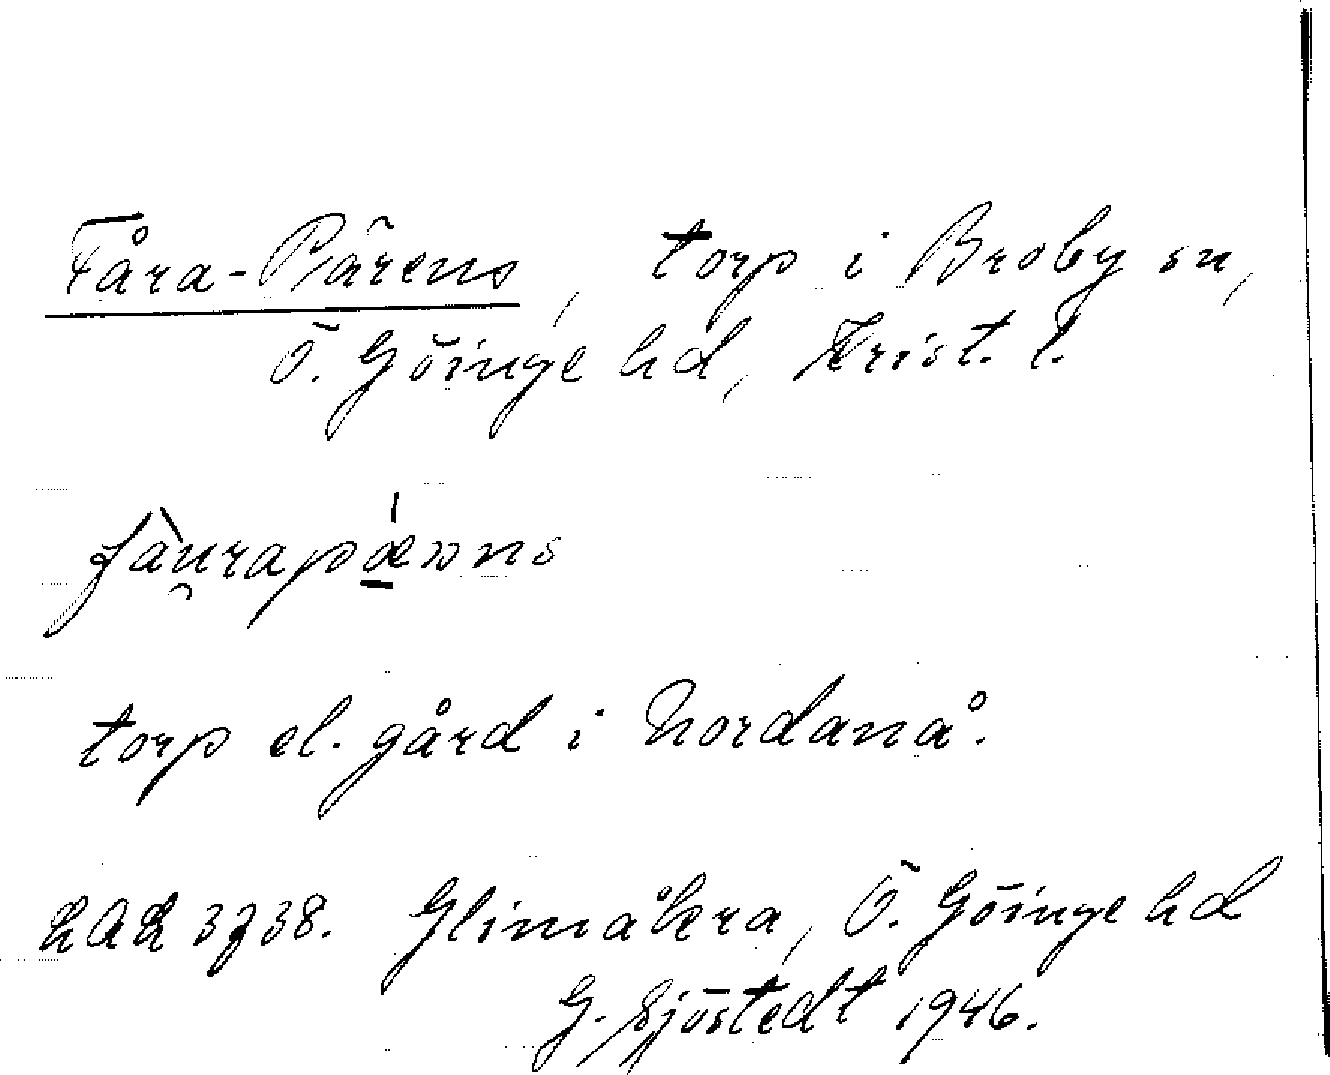 Fåra-Pärens, torp i Broby sn,
Ö. Göinge hd, Krist. l.
torp el. gård i Nordanå.
LAL 3738. Glimåkra, Ö. Göinge hd
G. Sjöstedt 1946.